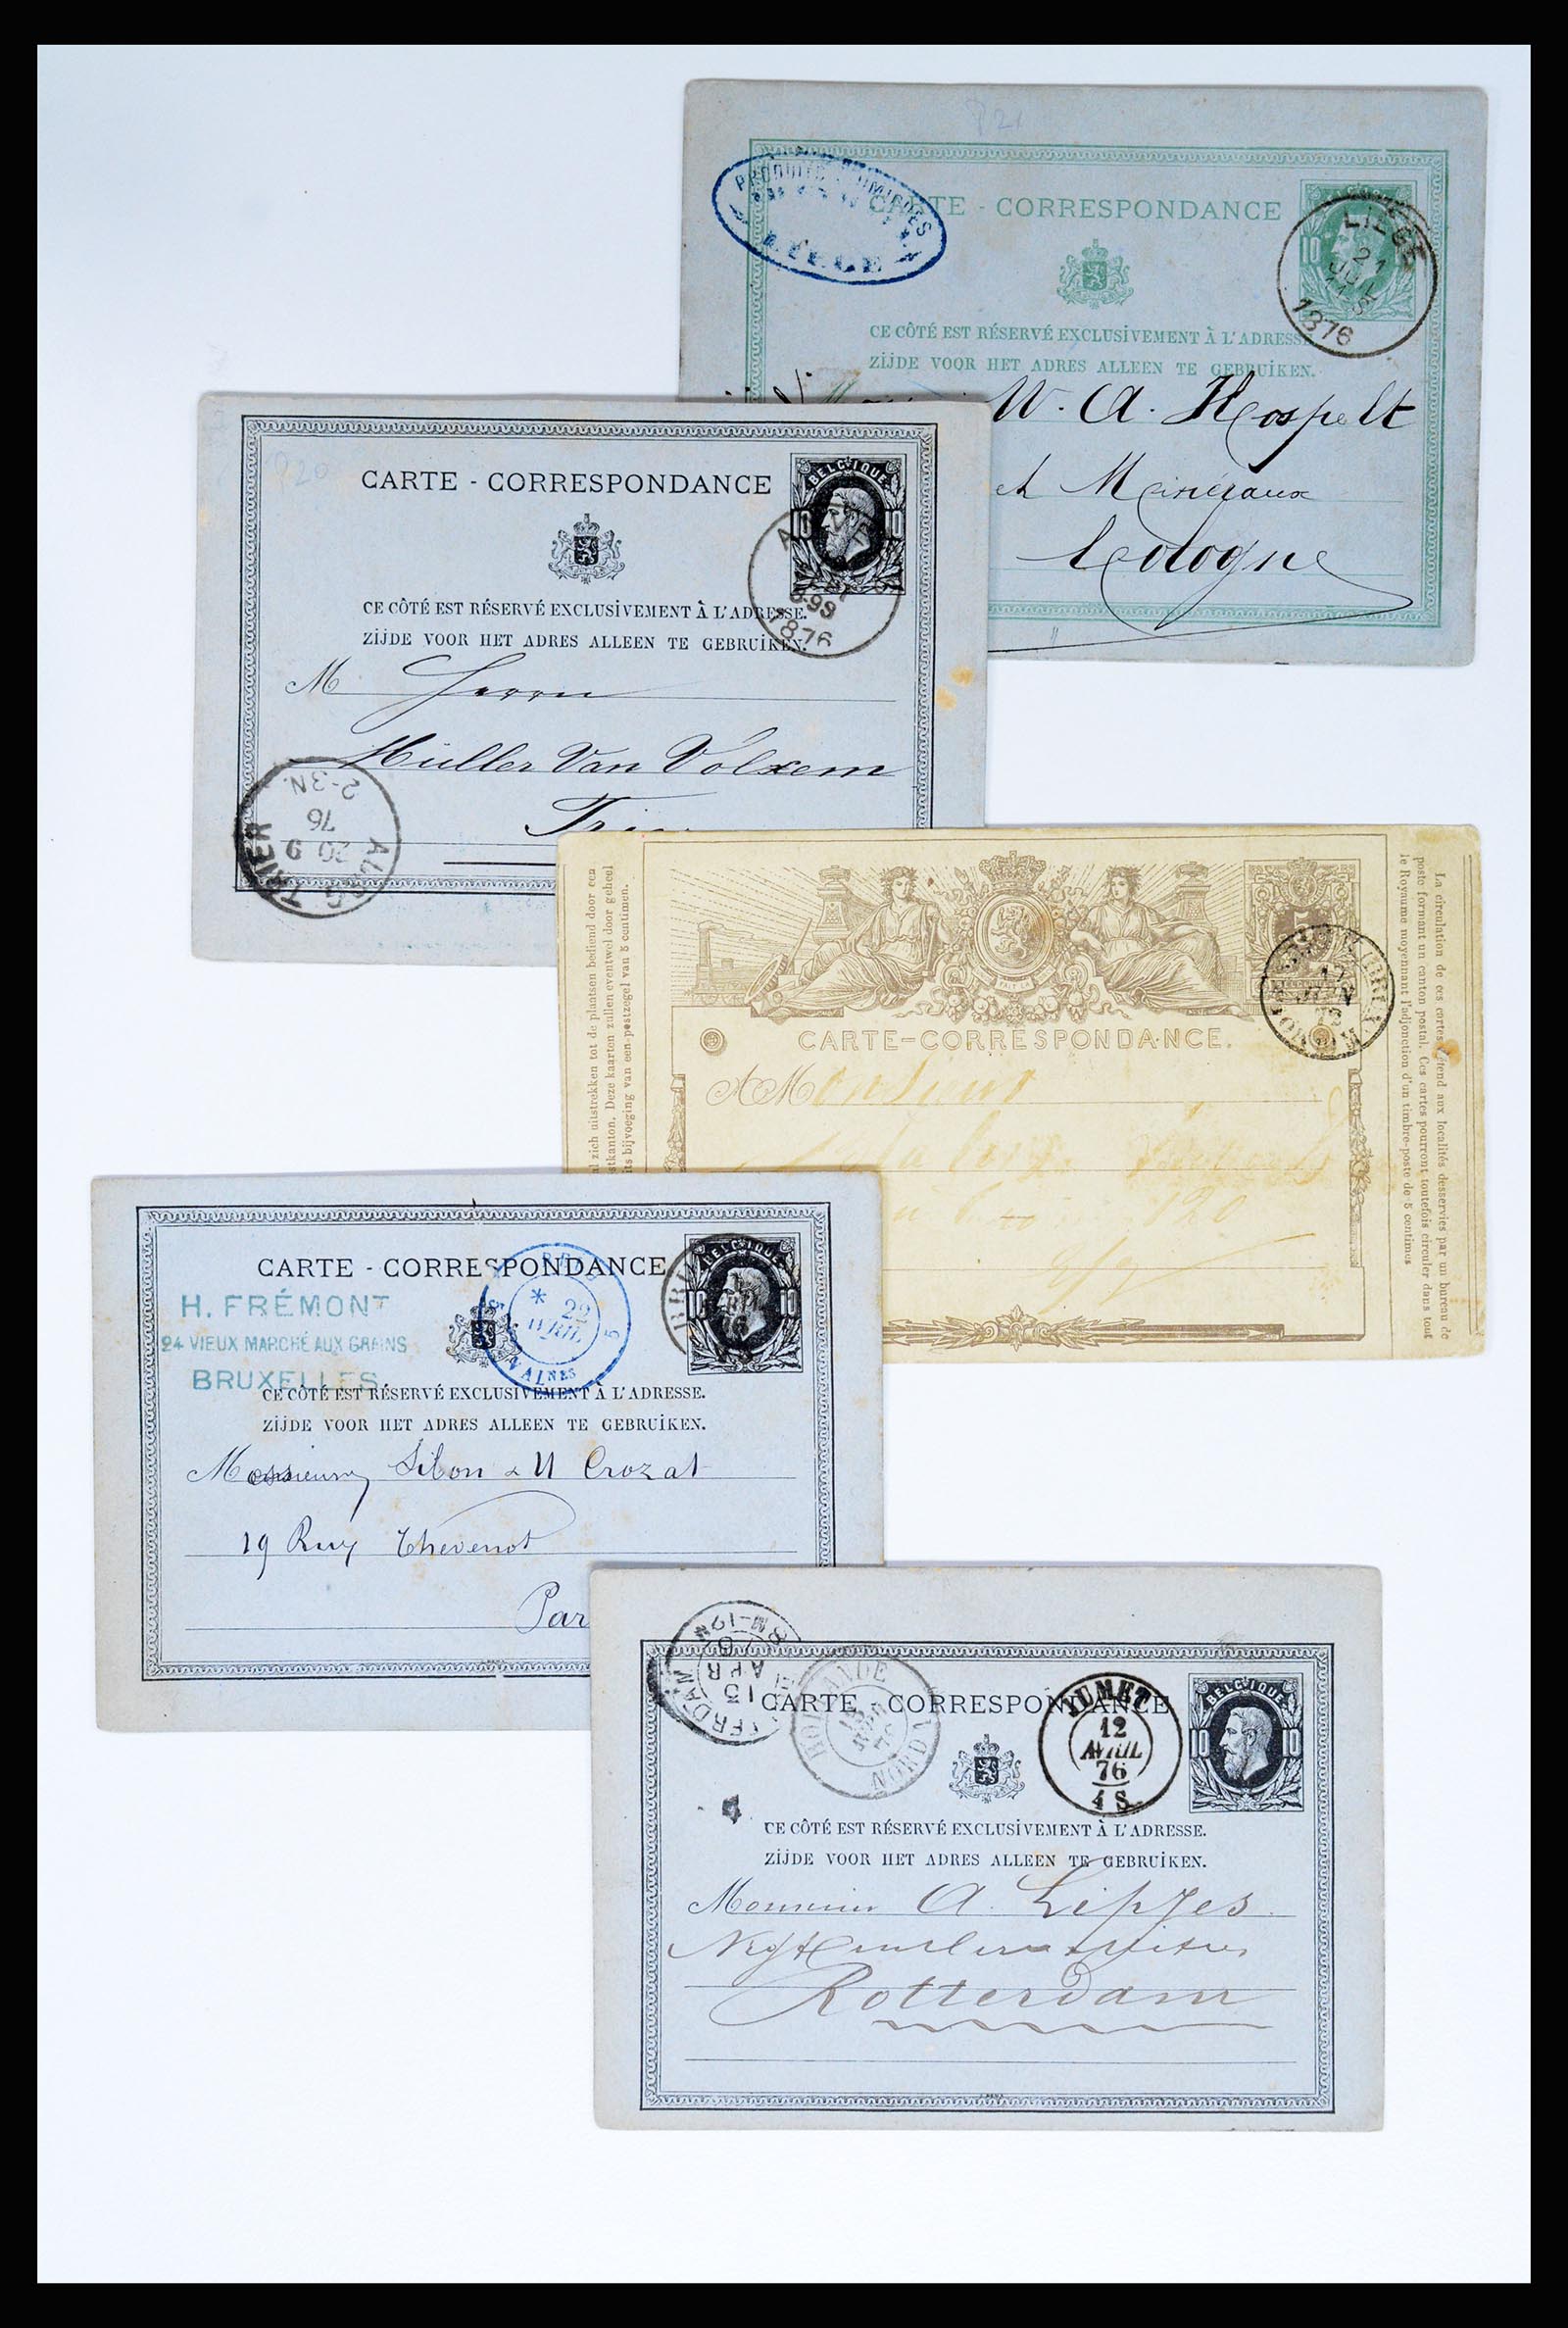 P21
PRODUITS CHIMIQUES
LIEGE
CARTE - CORRESPONDANCE
10
LIEGE
21
JUIL
1876
CE CÔTÉ EST RÉSERVÉ EXCLUSIVEMENT À L'ADRESSE.
ZIJDE VOOR HET ADRES ALLEEN TE GEBRUIKEN.
W. A. Hospelt
et Minéraux
Cologne
P20
CARTE - CORRESPONDANCE
BELGIQUE
10 10
1876
CE CÔTÉ EST RÉSERVÉ EXCLUSIVEMENT À L'ADRESSE.
ZIJDE VOOR HET ADRES ALLEEN TE GEBRUIKEN.
M Herrn
Müller Van Volxem
Trier
AUSG. TRIER
20 9
76
2-3N.
al zich uitstrekken tot de plaatsen bediend door een
stkanton. Deze kaarten zullen eventwel door geheel
its bijvoeging van een postzegel van 5 centimen.
5
CARTE-CORRESPONDANCE.
A Monsieur
120
La circulation de ces cartes s'étend aux localités desservies par un bureau de
poste formant un canton postal. Ces cartes pourront toutefois circuler dans tout
le Royaume moyennant l'adjonction d'un timbre-poste de 5 centimes
CARTE - CORRESPONDANCE
BELGIQUE
10 10
H. FRÉMONT
24 VIEUX MARCHÉ AUX GRAINS
BRUXELLES
22
AVRIL
CE CÔTÉ EST RÉSERVÉ EXCLUSIVEMENT À L'ADRESSE.
ZIJDE VOOR HET ADRES ALLEEN TE GEBRUIKEN.
Messieurs Silon & U Crozat
19 Rue Thevenot
Par
13
APR
76
8M-12M
HOLLANDE
NORD
CARTE - CORRESPONDANCE
JUMET
12
AVRIL
76
4 S
BELGIQUE
10 10
CE CÔTÉ EST RÉSERVÉ EXCLUSIVEMENT À L'ADRESSE.
ZIJDE VOOR HET ADRES ALLEEN TE GEBRUIKEN.
Monsieur A. Lipjes
Rotterdam